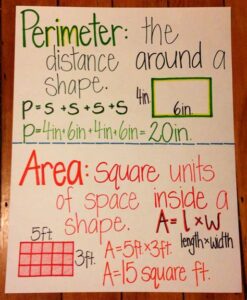 Perimeter: the
distance around a
shape.
4in.
6in.
P=s+s+s+s
P=4in+6in+4in+6in=20in.
Area: square units
of space inside a
shape.
A=l×w
length×width
5ft.
3ft.
A=5ft×3ft.
A=15 square ft.